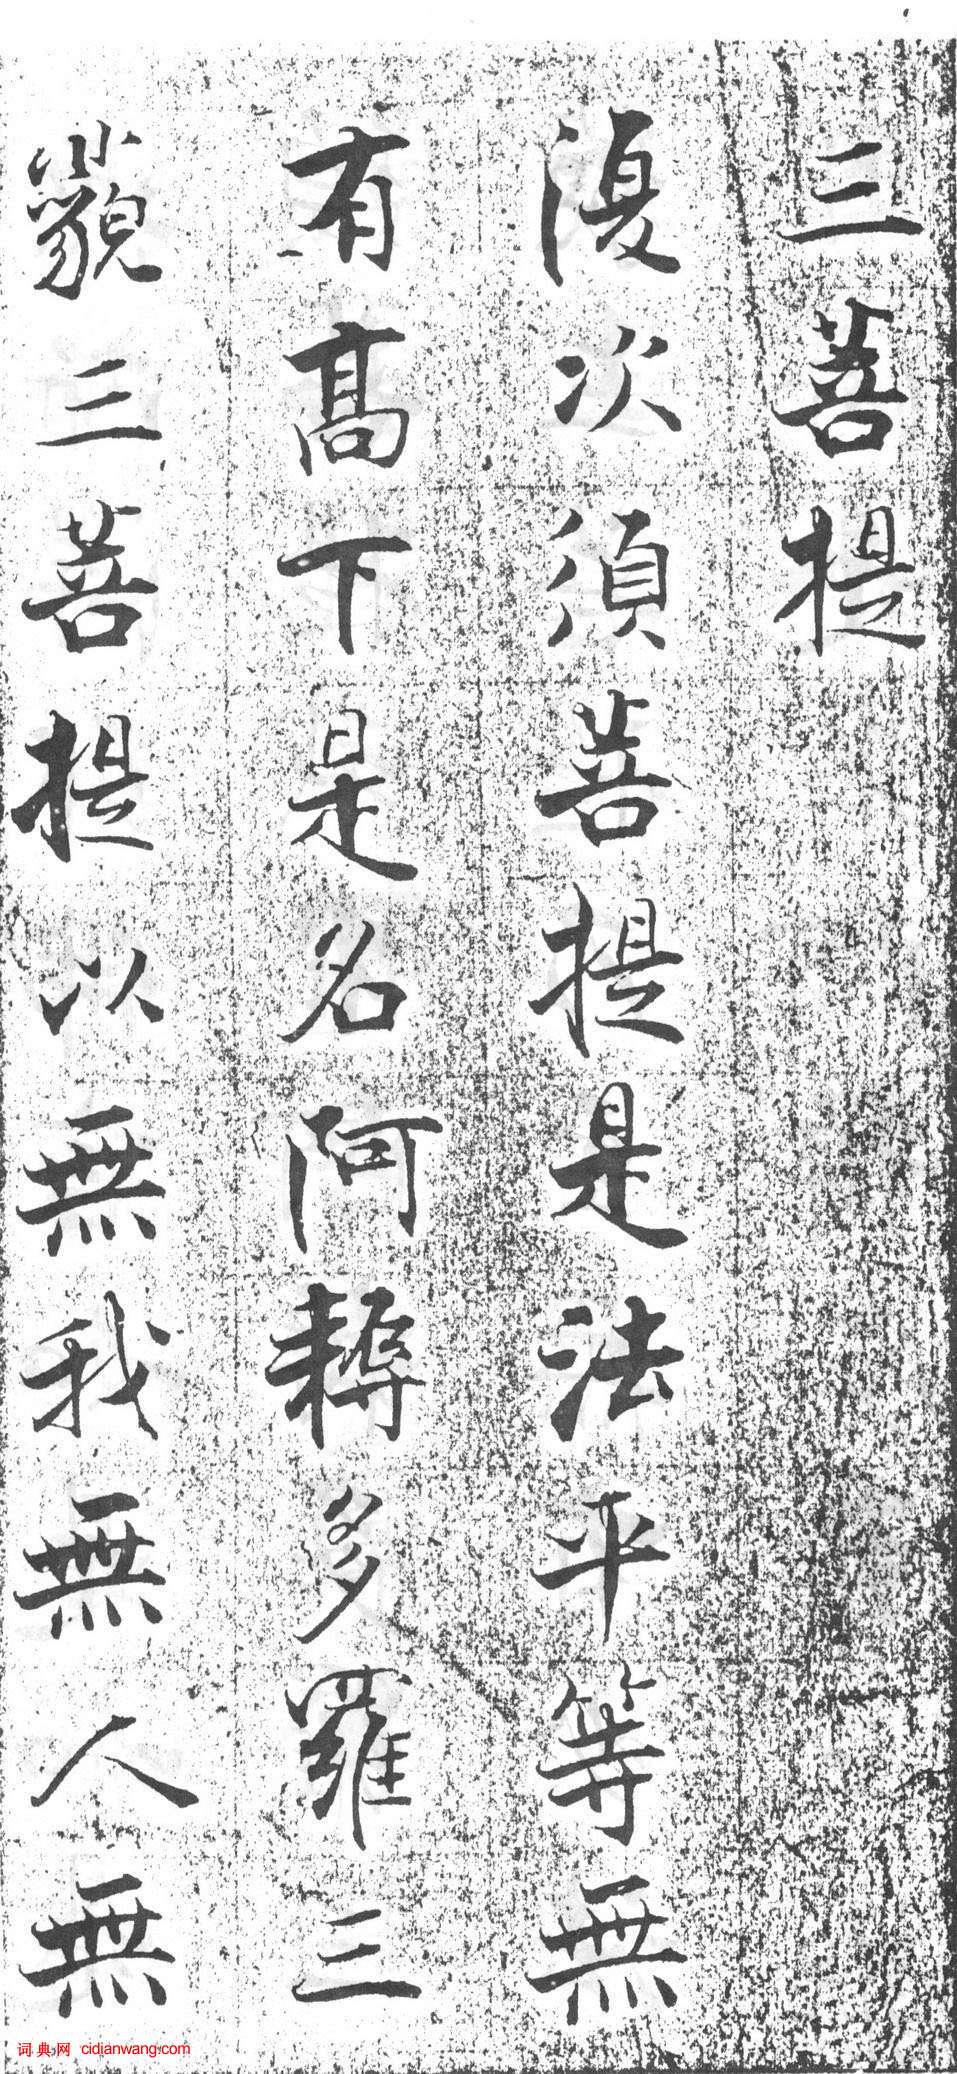 三菩提
復次須菩提是法平等無
有髙下是名阿耨多羅三
藐三菩提以無我無人無
词典网 cidianwang.com